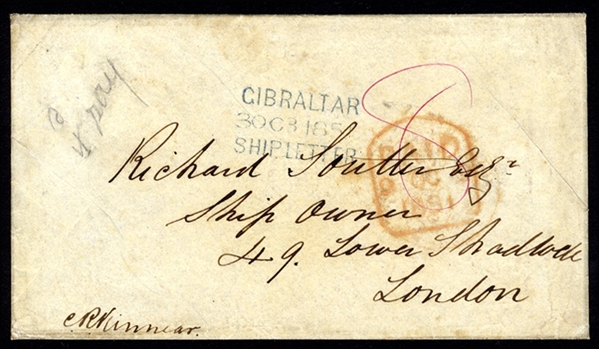 4 pay
GIBRALTAR
30 OC 185
SHIP LETTER
8
PAID
Richard Soutter Esqr
Ship Owner
49. Lower Shadwell
London
C.R. Kinnear.